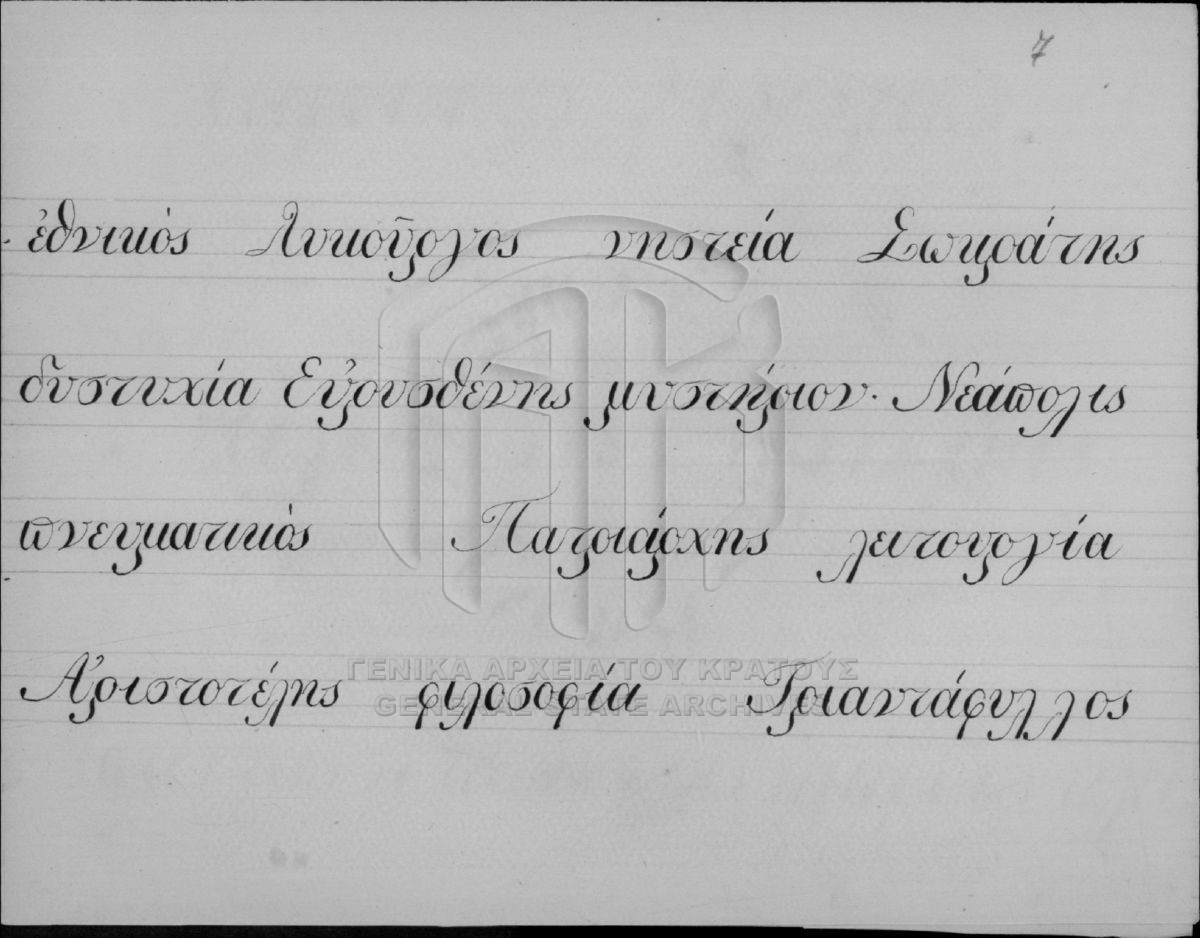 7
ἐθνικὸς Λυκοῦργος νηστεία Σωκράτης
δυστυχία Εὐρυσθένης μυστήριον. Νεάπολις
πνευματικὸς Πατριάρχης λειτουργία
Ἀριστοτέλης φιλοσοφία Τριαντάφυλλος
ΓΕΝΙΚΑ ΑΡΧΕΙΑ ΤΟΥ ΚΡΑΤΟΥΣ
GENERAL STATE ARCHIVES